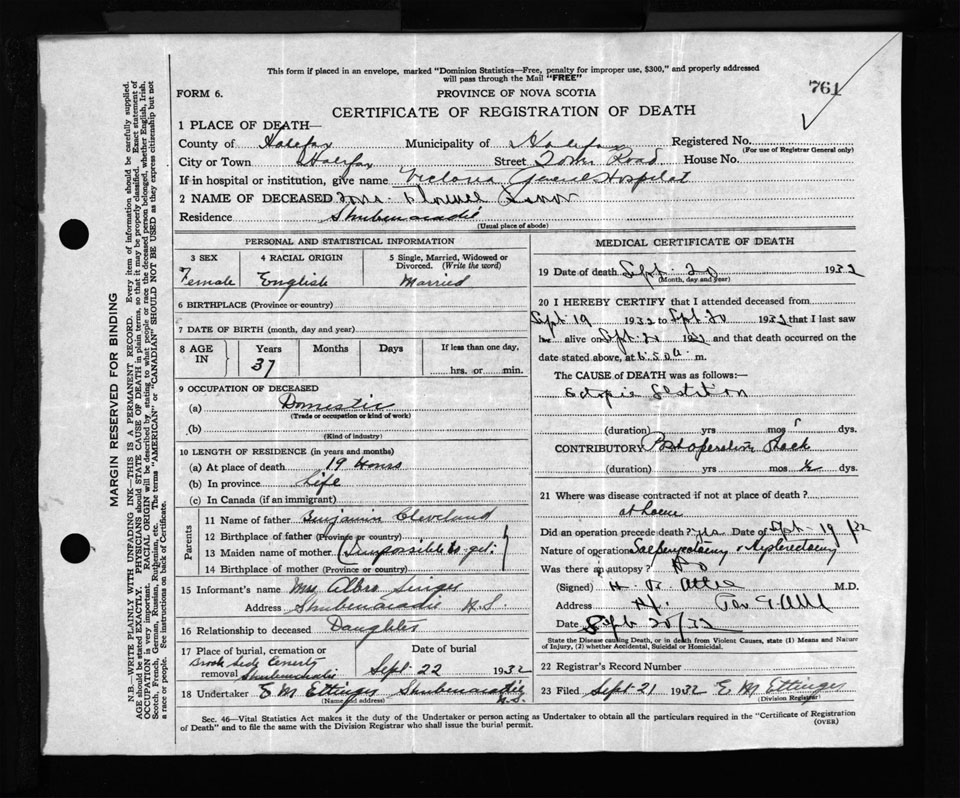 This form if placed in an envelope, marked "Dominion Statistics—Free, penalty for improper use, $300," and properly addressed
will pass through the Mail "FREE"
761
FORM 6.
PROVINCE OF NOVA SCOTIA
CERTIFICATE OF REGISTRATION OF DEATH
1 PLACE OF DEATH—
County of Halifax Municipality of Halifax Registered No.
(For use of Registrar General only)
City or Town Halifax Street Road House No.
If in hospital or institution, give name Victoria General Hospital
2 NAME OF DECEASED Mrs. Florence
Residence Shubenacadie
(Usual place of abode)
PERSONAL AND STATISTICAL INFORMATION
3 SEX 4 RACIAL ORIGIN 5 Single, Married, Widowed or
Divorced. (Write the word)
Female English Married
6 BIRTHPLACE (Province or country)
7 DATE OF BIRTH (month, day and year)
8 AGE IN Years Months Days If less than one day,
37 hrs. or min.
9 OCCUPATION OF DECEASED
(a) Domestic
(Trade or occupation or kind of work)
(b)
(Kind of industry)
10 LENGTH OF RESIDENCE (in years and months)
(a) At place of death 19 Hours
(b) In province Life
(c) In Canada (if an immigrant)
Parents
11 Name of father Benjamin Cleveland
12 Birthplace of father (Province or country)
13 Maiden name of mother (Impossible to get)
14 Birthplace of mother (Province or country)
15 Informant's name Mrs Albro Singer
Address Shubenacadie N.S.
16 Relationship to deceased Daughter
17 Place of burial, cremation or Date of burial
removal Shubenacadie Sept 22 1932
18 Undertaker E M Ettinger Shubenacadie N.S.
(Name and address)
MEDICAL CERTIFICATE OF DEATH
19 Date of death Sept. 20 1932
(Month, day and year)
20 I HEREBY CERTIFY that I attended deceased from
Sept 19 1932 to Sept 20 1932 that I last saw
alive on Sept. 193 and that death occurred on the
date stated above, at m.
The CAUSE of DEATH was as follows:—
Ectopic Gestation
(duration) yrs mos dys.
CONTRIBUTORY Post operative Shock
(duration) yrs mos ½ dys.
21 Where was disease contracted if not at place of death?
at home
Did an operation precede death? yes Date of Sept. 19/32
Nature of operation Salpingectomy
Was there an autopsy? No
(Signed) H. B. Atlee M.D.
Address
Date Sept 20/32
State the Disease causing Death, or in death from Violent Causes, state (1) Means and Nature
of Injury, (2) whether Accidental, Suicidal or Homicidal.
22 Registrar's Record Number
23 Filed Sept 21 1932 E M Ettinger
(Division Registrar)
Sec. 46—Vital Statistics Act makes it the duty of the Undertaker or person acting as Undertaker to obtain all the particulars required in the "Certificate of Registration
of Death" and to file the same with the Division Registrar who shall issue the burial permit.
(OVER)
MARGIN RESERVED FOR BINDING
N.B.—WRITE PLAINLY WITH UNFADING INK—THIS IS A PERMANENT RECORD. Every item of information should be carefully supplied.
AGE should be stated EXACTLY. PHYSICIANS should STATE CAUSE OF DEATH in plain terms, so that it may be properly classified. Exact statement of
OCCUPATION is very important. RACIAL ORIGIN will be described by stating to what people or race the deceased person belonged, whether English, Irish,
Scotch, French, German, Russian, Ruthenian, etc. The terms "AMERICAN" or "CANADIAN" SHOULD NOT BE USED as they express citizenship but not
a race or people. See instructions on back of Certificate.